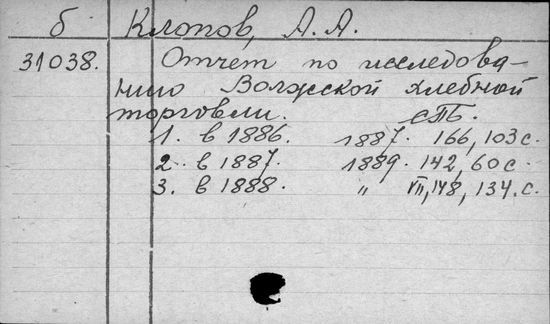 б Клопов, А. А.
31038. Отчет по исследова-
нию Волжской хлебной
торговли. СПБ.
1. в 1886. 1887. 166, 103 с.
2. в 1887. 1889. 142, 60 с.
3. в 1888. " VII, 148, 134. с.